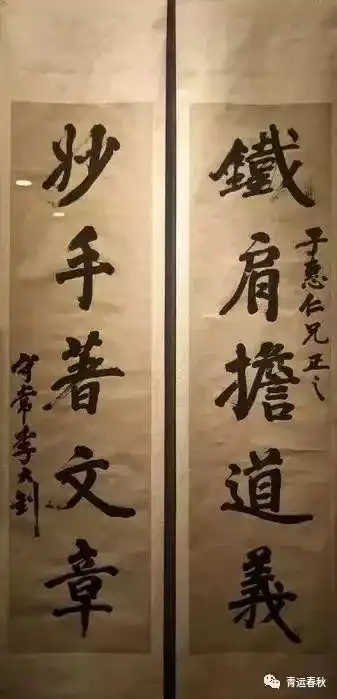 鐵肩擔道義
子惠仁兄正之
妙手著文章
守常李大釗
青运春秋